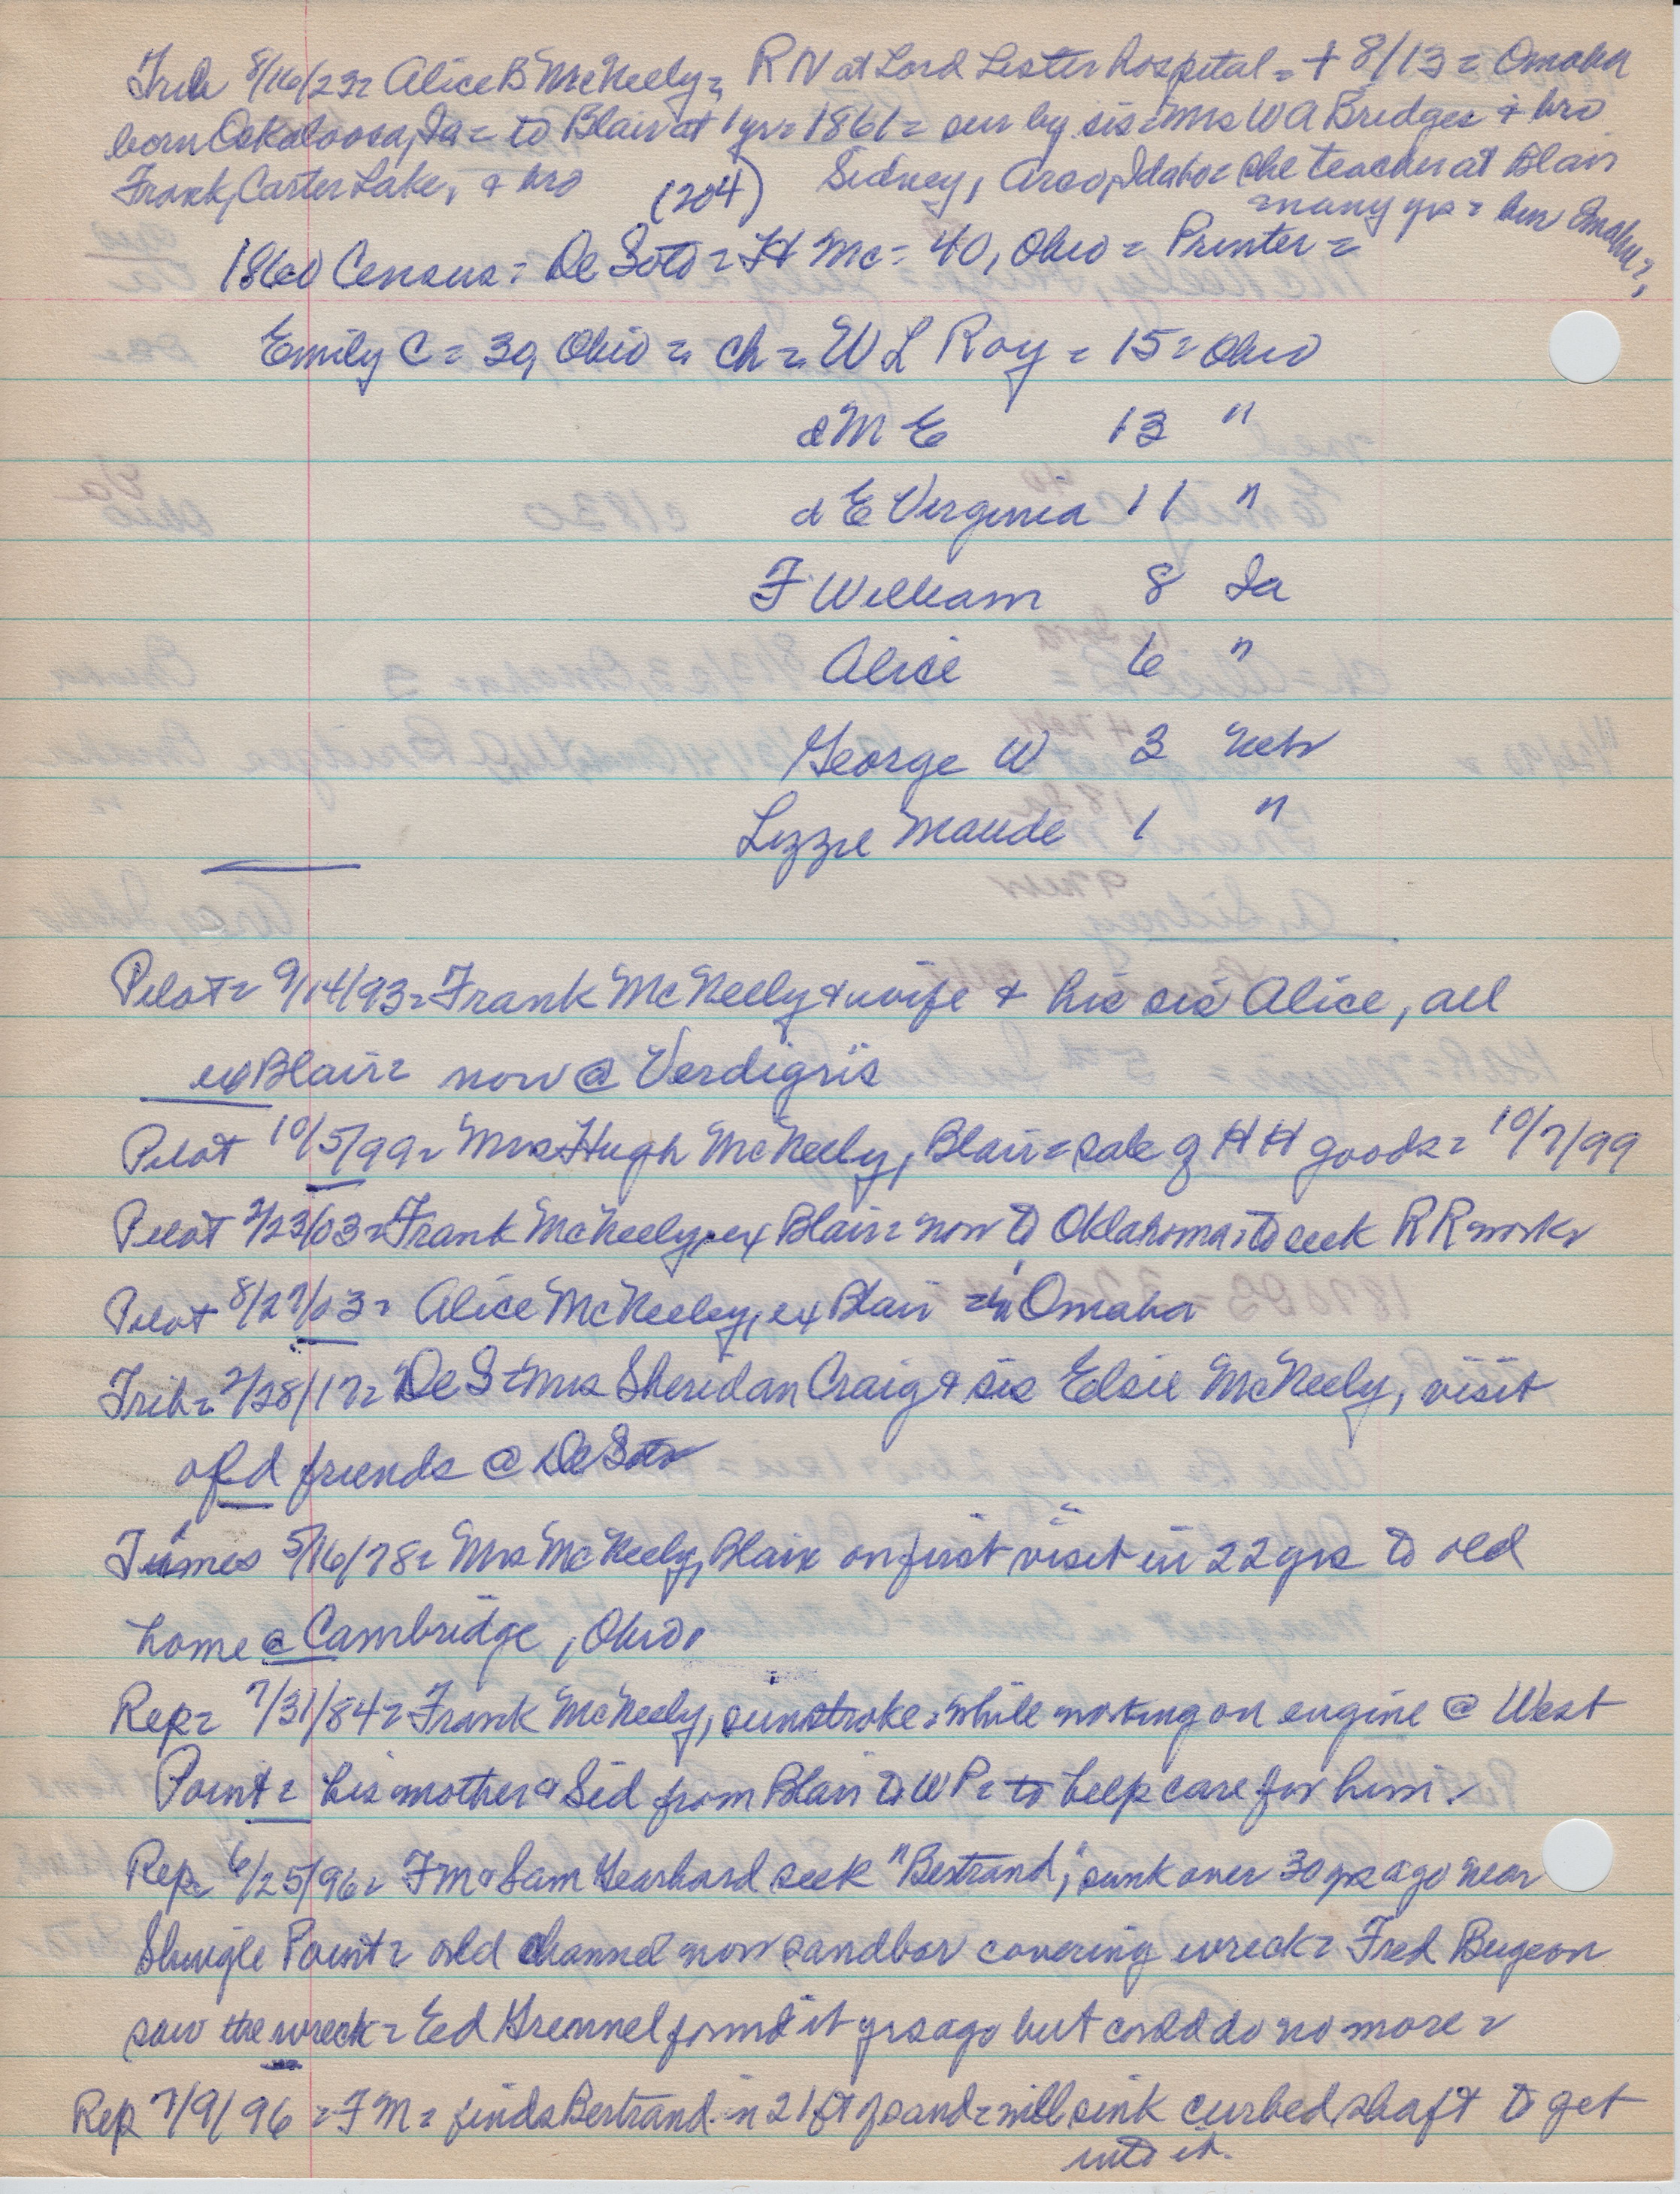 Trib 8/16/23= Alice B McNeely= RN at Lord Lister hospital = + 8/13 = Omaha
born Oskaloosa, Ia = to Blair at 1 yr= 1861 = sur by sis= Mrs W A Bridges & bro
Frank, Carter Lake, & bro (204) Sidney, Arco, Idaho= she teacher at Blair
many yrs = bur Omaha=,
1860 Census= De Soto= H Mc= 40, Ohio = Printer =
Emily C = 39, Ohio = ch = W L Roy = 15= Ohio
d M E 13 "
d E Virginia 11 "
F William 8 Ia
Alice 6 "
George W 3 Neb
Lizzie Maude 1 "
Pilot= 9/14/93= Frank McNeely & wife & his sis Alice, all
ex Blair= now @ Verdigris
Pilot 10/5/99= Mrs Hugh McNeely, Blair= sale of HH goods= 10/7/99
Pilot 2/23/03= Frank McNeely, ex Blair= now to Oklahoma, to seek RR work=
Pilot 8/27/03= Alice McNeeley, ex Blair = in Omaha
Trib= 2/28/17= De S= Mrs Sheridan Craig & sis Elsie McNeely, visit
old friends @ De Soto
Times 5/16/78= Mrs McNeely, Blair on first visit in 22 yrs to old
home @ Cambridge, Ohio.
Rep= 7/31/84= Frank McNeely, sunstroke= while working on engine @ West
Point= his mother & Sid from Blair to WP= to help care for him.
Rep= 6/25/96= F M & Sam Gearhard seek "Bertrand", sunk over 30 yrs ago near
Shingle Point= old channel now sandbar covering wreck= Fred
saw the wreck= Ed found it yrs ago but could do no more =
Rep 7/9/96 = F M = finds Bertrand in 21 ft of sand= will sink curbed shaft to get
into it.